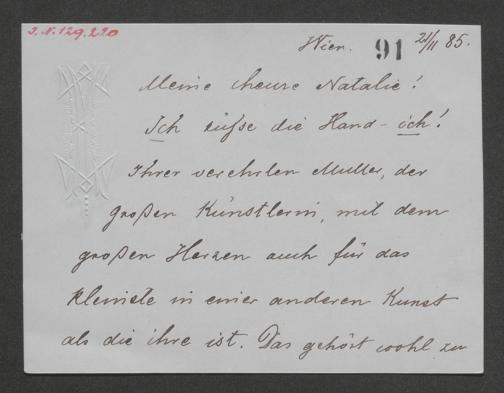 J.N. 129.220
Wien. 91 21/11 85.
Meine theure Natalie!
Ich küsse die Hand - ich!
Ihrer verehrten Mutter, der
großen Künstlerin, mit dem
großen Herzen auch für das
kleinste in einer anderen Kunst
als die ihre ist. Das gehört wohl zu